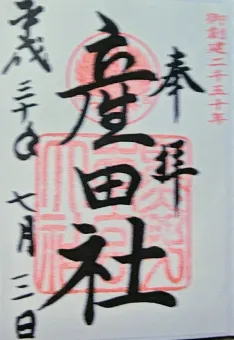 御創建二千五十年
奉拝
産田社
平成三十年七月三日